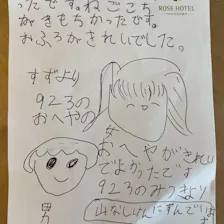 ったです。ねごこち
がきもちかったです。
おふろがきれいでした。
ROSE HOTEL
すずより
923の
おへやの
女
おへやがきれい
でよかったです
923のみつきより
山なしけんにすんでいます
男